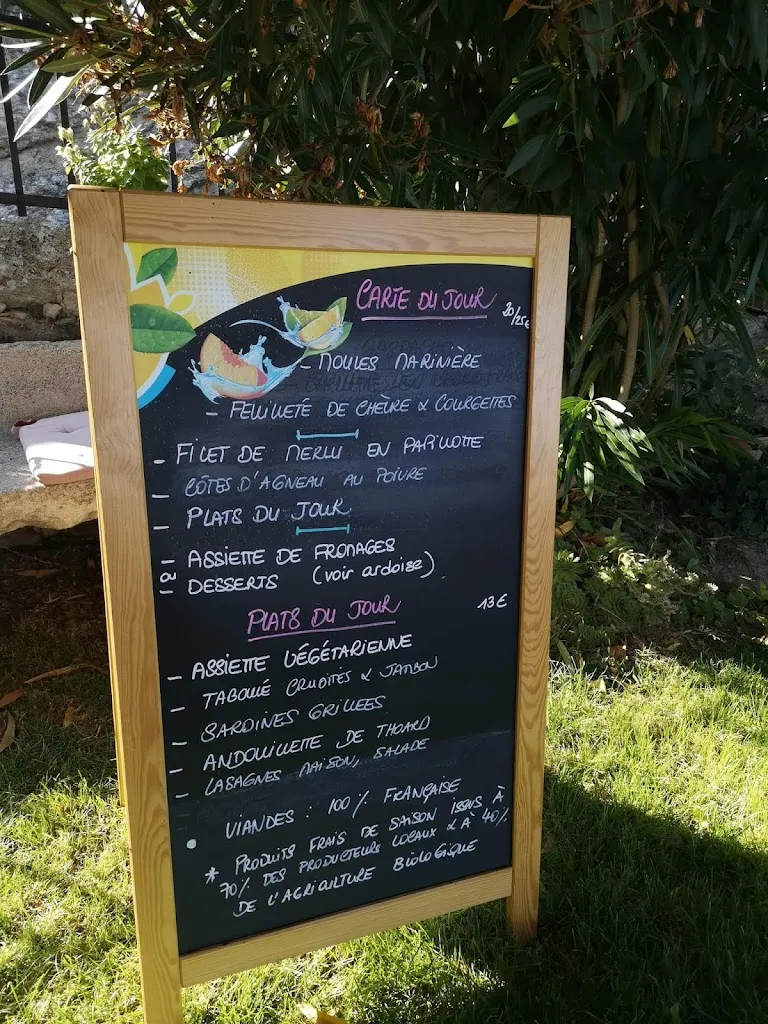 CARTE DU JOUR 20/25€
- MOULES MARINIÈRE
- FEUILLETÉ DE CHÈVRE & COURGETTES
- FILET DE MERLU EN PAPILLOTTE
- CÔTES D'AGNEAU AU POIVRE
- PLATS DU JOUR
- ASSIETTE DE FROMAGES
ou
- DESSERTS (voir ardoise)
PLATS DU JOUR 13€
- ASSIETTE VÉGÉTARIENNE
- TABOULÉ CRUDITÉS & JAMBON
- SARDINES GRILLÉES
- ANDOUILLETTE DE THOARD
- LASAGNES MAISON, SALADE
• VIANDES : 100% FRANÇAISE
* PRODUITS FRAIS DE SAISON ISSUS À
70% DES PRODUCTEURS LOCAUX & À 40%
DE L'AGRICULTURE BIOLOGIQUE